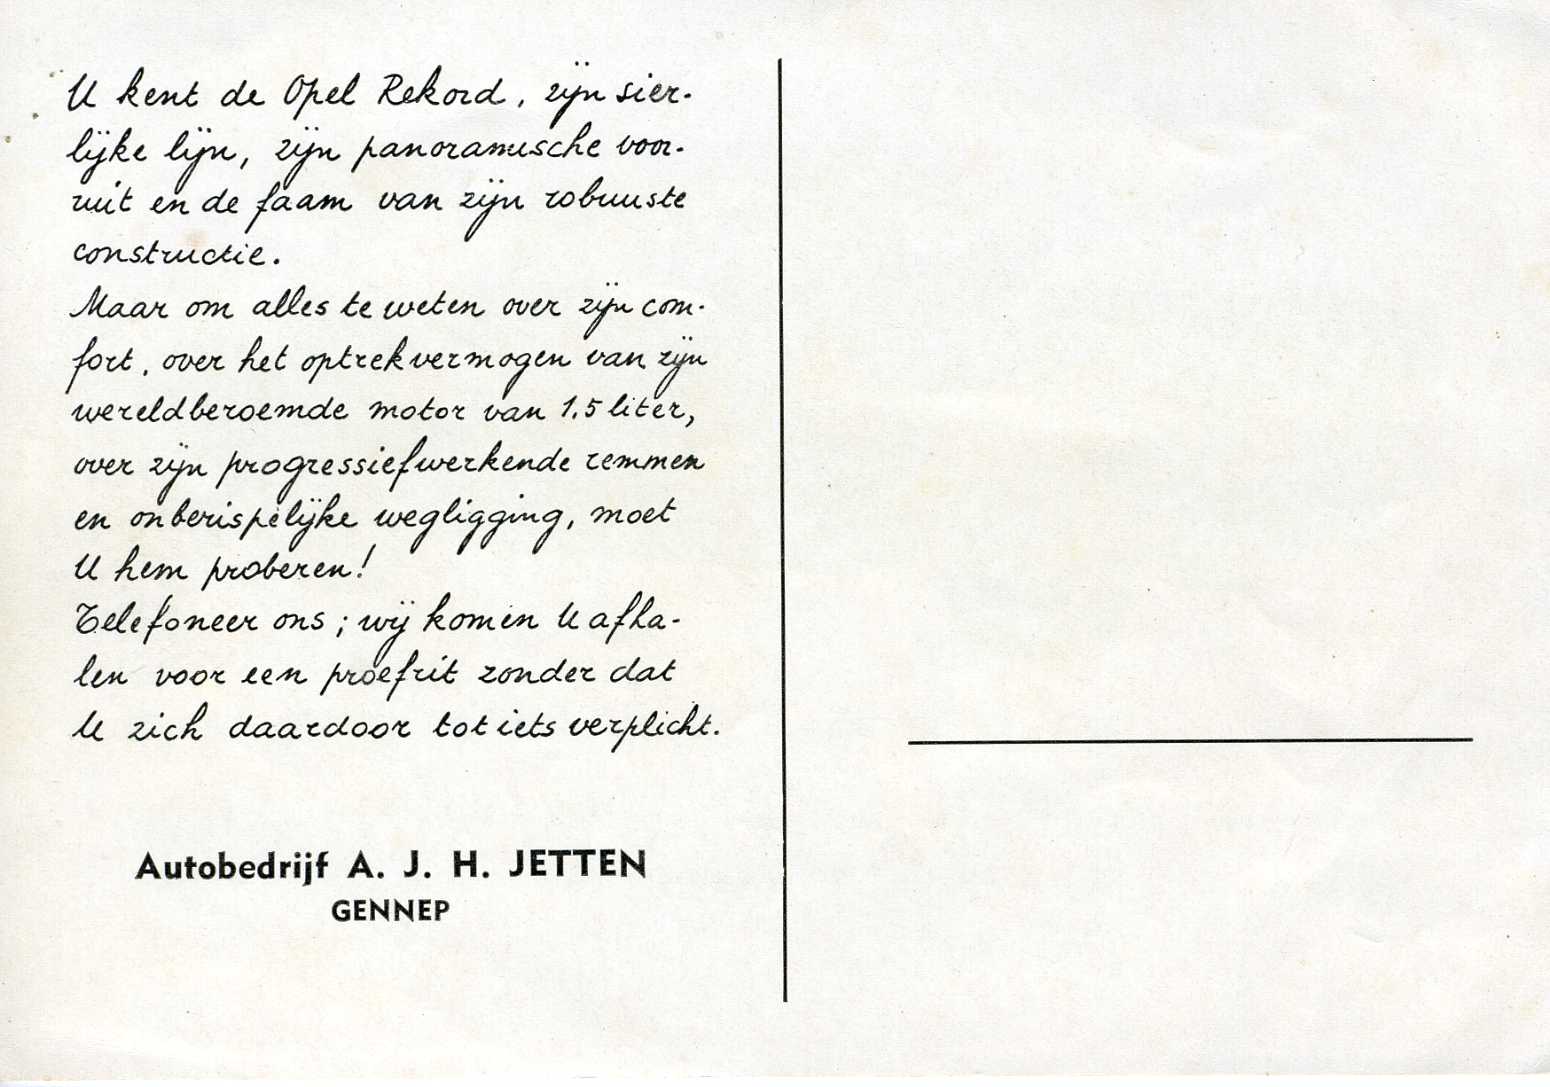 U kent de Opel Rekord, zijn sier-
lijke lijn, zijn panoramische voor-
ruit en de faam van zijn robuuste
constructie.
Maar om alles te weten over zijn com-
fort, over het optrekvermogen van zijn
wereldberoemde motor van 1.5 liter,
over zijn progressiefwerkende remmen
en onberispelijke wegligging, moet
U hem proberen!
Telefoneer ons; wij komen U afha-
len voor een proefrit zonder dat
U zich daardoor tot iets verplicht.
Autobedrijf A. J. H. JETTEN
GENNEP